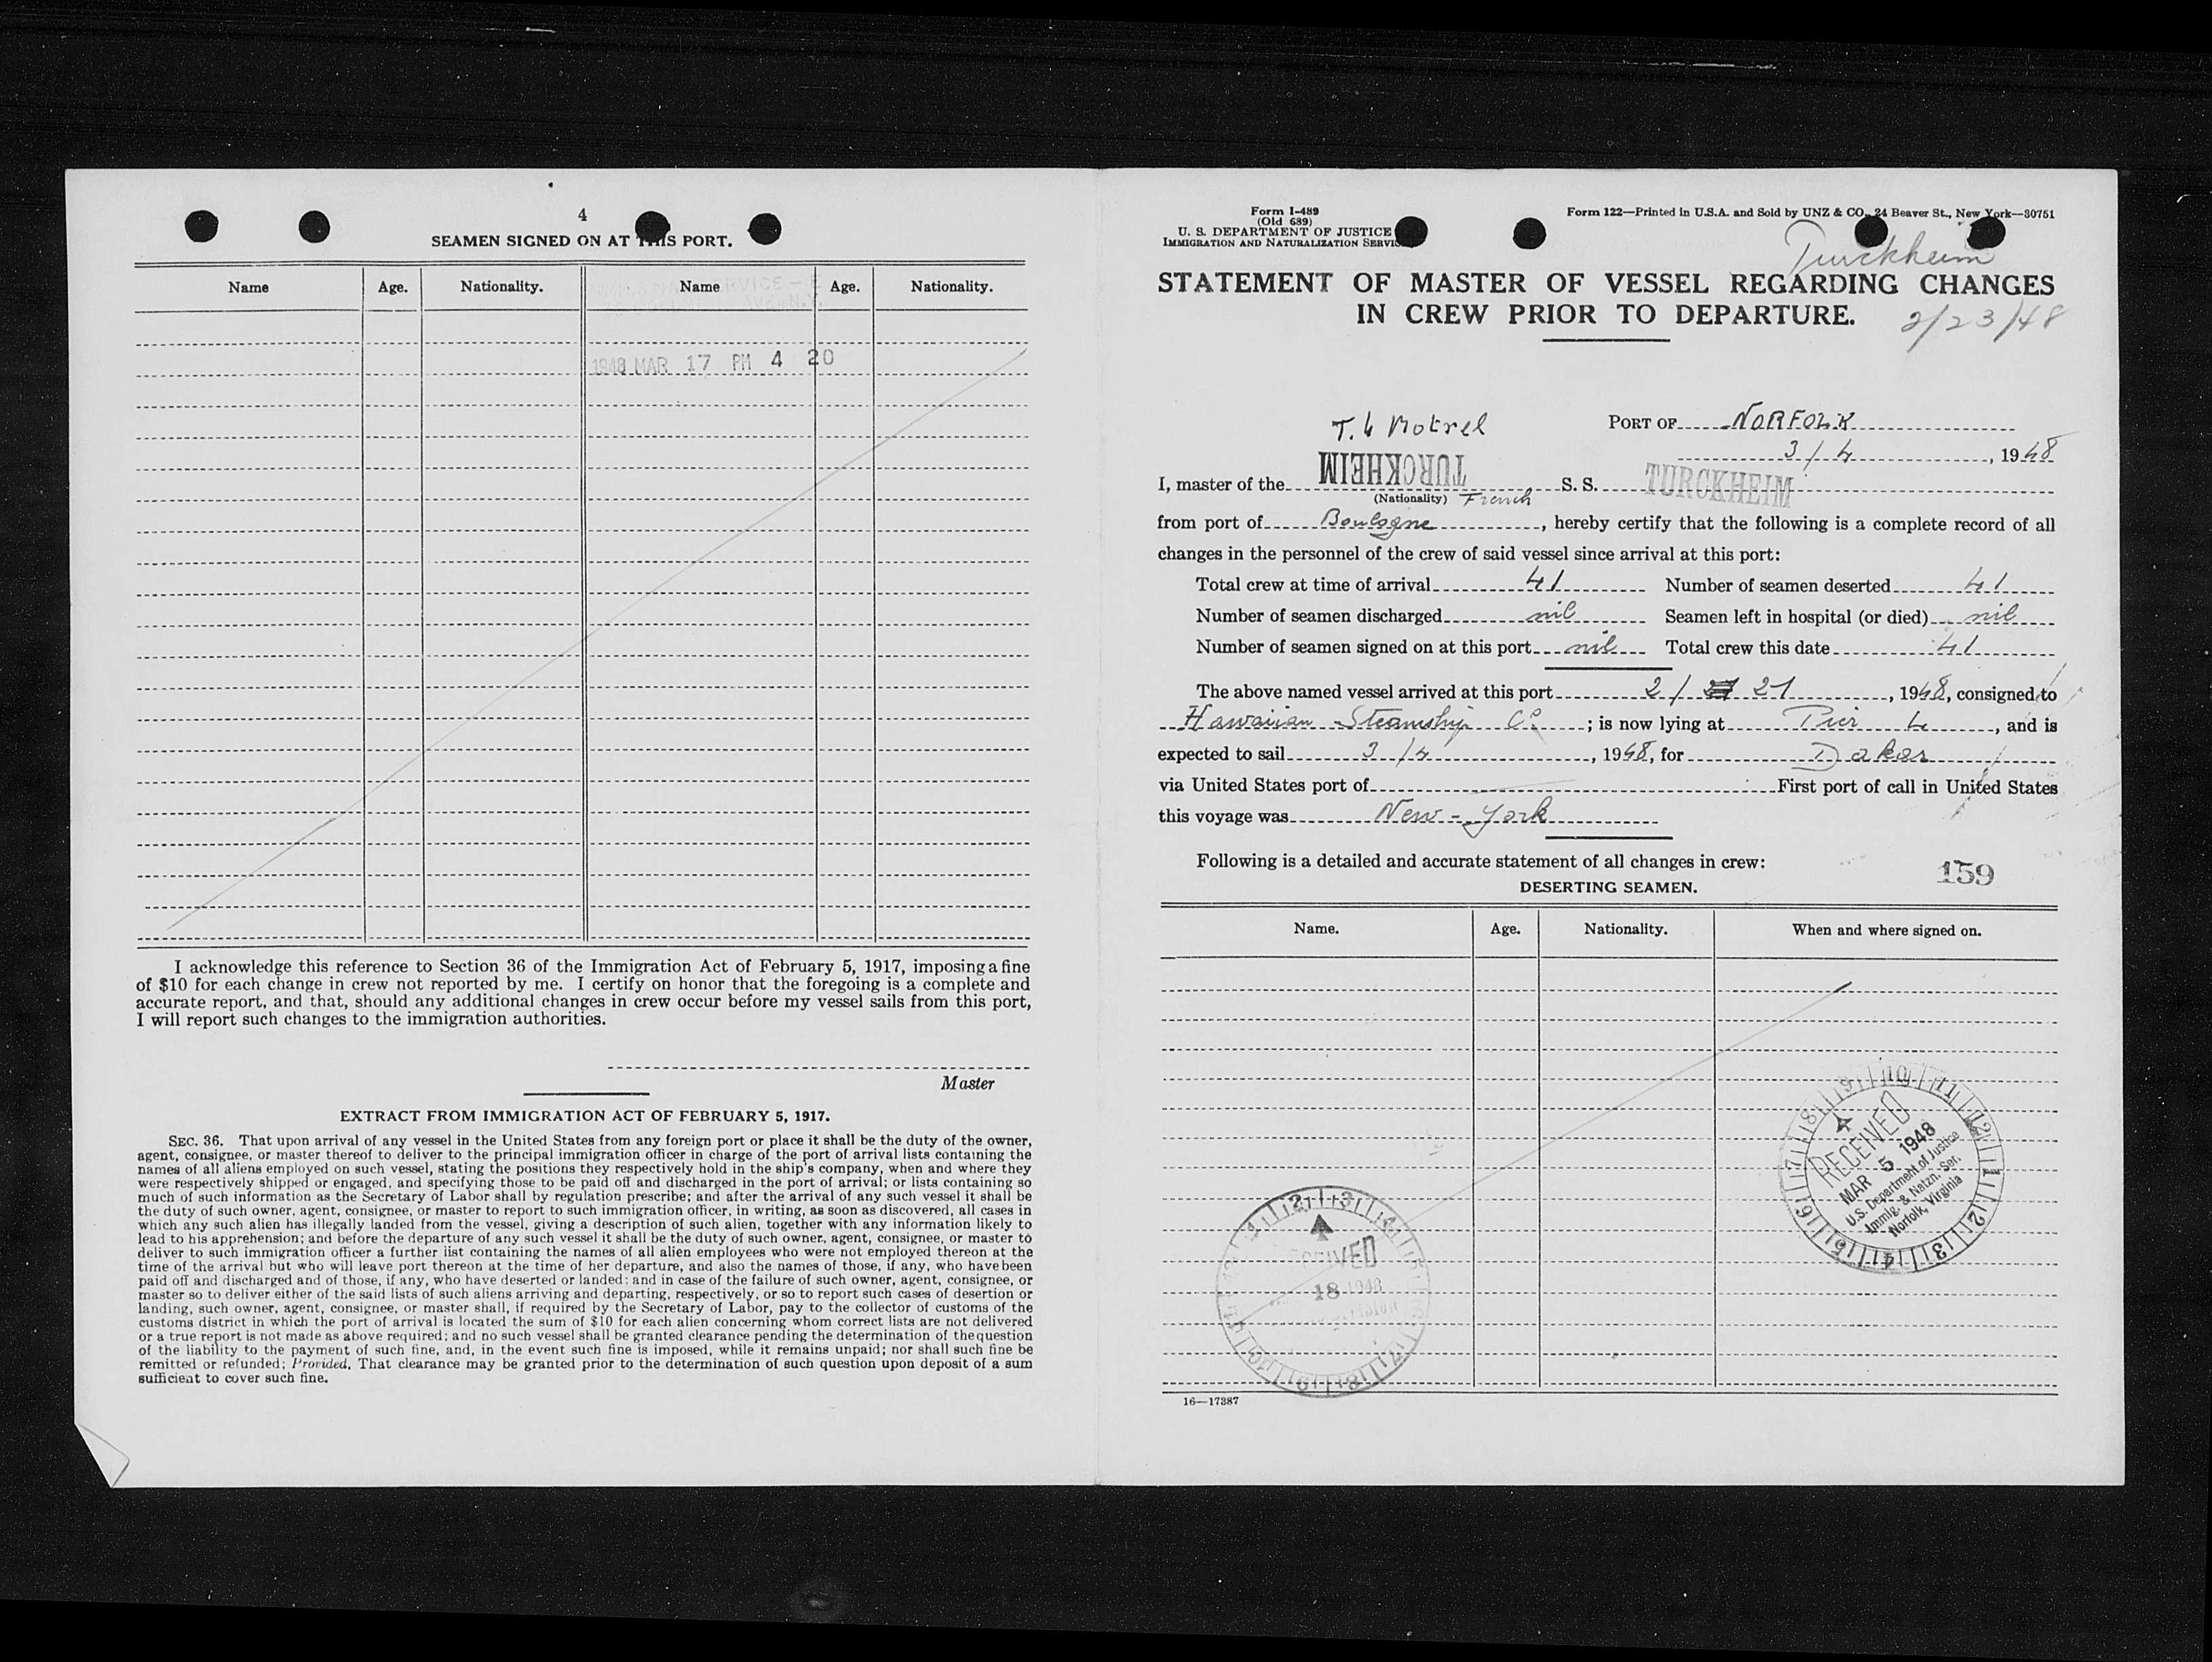 4
SEAMEN SIGNED ON AT THIS PORT.
Name Age. Nationality. Name Age. Nationality.
1948 MAR 17 PM 4 20
I acknowledge this reference to Section 36 of the Immigration Act of February 5, 1917, imposing a fine
of $10 for each change in crew not reported by me. I certify on honor that the foregoing is a complete and
accurate report, and that, should any additional changes in crew occur before my vessel sails from this port,
I will report such changes to the immigration authorities.
Master
EXTRACT FROM IMMIGRATION ACT OF FEBRUARY 5, 1917.
SEC. 36. That upon arrival of any vessel in the United States from any foreign port or place it shall be the duty of the owner,
agent, consignee, or master thereof to deliver to the principal immigration officer in charge of the port of arrival lists containing the
names of all aliens employed on such vessel, stating the positions they respectively hold in the ship's company, when and where they
were respectively shipped or engaged, and specifying those to be paid off and discharged in the port of arrival; or lists containing so
much of such information as the Secretary of Labor shall by regulation prescribe; and after the arrival of any such vessel it shall be
the duty of such owner, agent, consignee, or master to report to such immigration officer, in writing, as soon as discovered, all cases in
which any such alien has illegally landed from the vessel, giving a description of such alien, together with any information likely to
lead to his apprehension; and before the departure of any such vessel it shall be the duty of such owner, agent, consignee, or master to
deliver to such immigration officer a further list containing the names of all alien employees who were not employed thereon at the
time of the arrival but who will leave port thereon at the time of her departure, and also the names of those, if any, who have been
paid off and discharged and of those, if any, who have deserted or landed; and in case of the failure of such owner, agent, consignee, or
master so to deliver either of the said lists of such aliens arriving and departing, respectively, or so to report such cases of desertion or
landing, such owner, agent, consignee, or master shall, if required by the Secretary of Labor, pay to the collector of customs of the
customs district in which the port of arrival is located the sum of $10 for each alien concerning whom correct lists are not delivered
or a true report is not made as above required; and no such vessel shall be granted clearance pending the determination of the question
of the liability to the payment of such fine, and, in the event such fine is imposed, while it remains unpaid; nor shall such fine be
remitted or refunded; Provided, That clearance may be granted prior to the determination of such question upon deposit of a sum
sufficient to cover such fine.
Form I-489
(Old 689)
U. S. DEPARTMENT OF JUSTICE
IMMIGRATION AND NATURALIZATION SERVICE
Form 122—Printed in U.S.A. and Sold by UNZ & CO., 24 Beaver St., New York—30751
Turckheim
STATEMENT OF MASTER OF VESSEL REGARDING CHANGES
IN CREW PRIOR TO DEPARTURE.
2/23/48
T. 4 Motrel
PORT OF NORFOLK
3/4, 1948
I, master of the TURCKHEIM S. S. TURCKHEIM
(Nationality) French
from port of Boulogne, hereby certify that the following is a complete record of all
changes in the personnel of the crew of said vessel since arrival at this port:
Total crew at time of arrival 41 Number of seamen deserted 41
Number of seamen discharged nil Seamen left in hospital (or died) nil
Number of seamen signed on at this port nil Total crew this date 41
The above named vessel arrived at this port 2/ 21, 1948, consigned to
Hawaiian Steamship Co; is now lying at Pier 4, and is
expected to sail 3/4, 1948, for Dakar
via United States port of First port of call in United States
this voyage was New-York
Following is a detailed and accurate statement of all changes in crew:
159
DESERTING SEAMEN.
Name. Age. Nationality. When and where signed on.
RECEIVED
MAR 5 1948
U.S. Department of Justice
Immig. & Natzn. Ser.
Norfolk, Virginia
RECEIVED
18 1948
16—17387